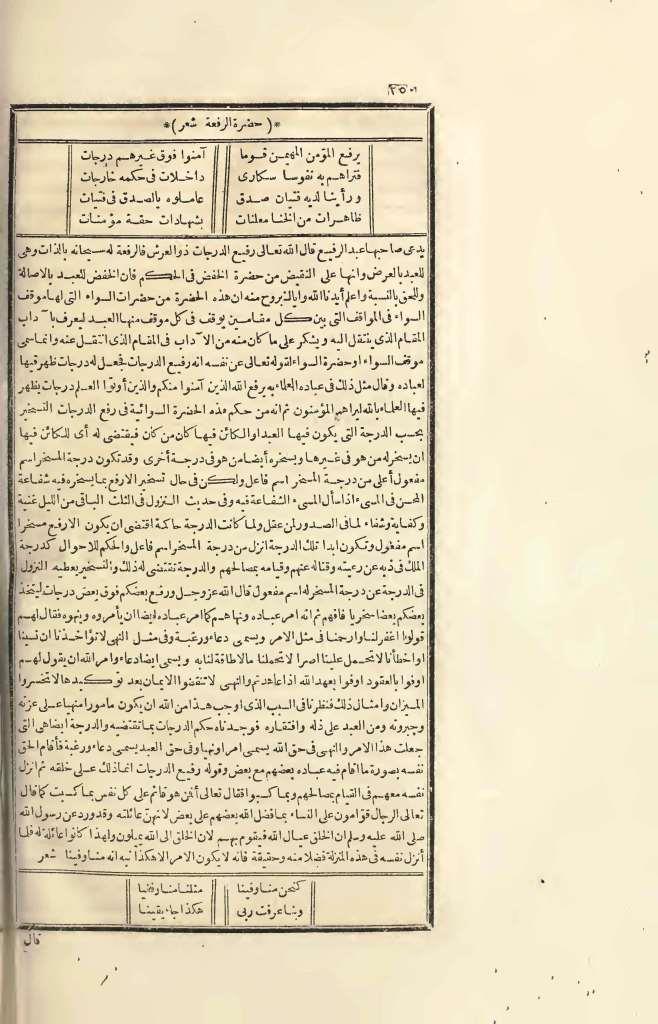 ٢٥٠
*(حضرة الرفعة شعر)*
يرفع المؤمن المهيمن قوما آمنوا فوق غيرهم درجات
فتراهم به نفوسا سكارى داخلات فى حكمه خارجات
ورأينا لديه فتيان صدق عاملوه بالصدق فى فتيات
ظاهرات من الخنا معلنات بشهادات حقة مؤمنات
يدعى صاحبها عبد الرفيع قال الله تعالى رفيع الدرجات ذو العرش فالرفعة له سبحانه بالذات وهى
للعبد بالعرض وانها على النقيض من حضرة الخفض فى الحكم فان الخفض للعبد بالاصالة
وللحق بالنسبة واعلم أيدنا الله وايالك بروح منه ان هذه الحضرة من حضرات السواء التى لها موقف
السواء فى المواقف التى بين كل مقامين يوقف فى كل موقف منها العبد ليعرف بآداب
المقام الذى ينتقل اليه ويشكر على ما كان منه من الآداب فى المقام الذى انتقل عنه وانما سمى
موقف السواء او حضرة السواء لقوله تعالى عن نفسه انه رفيع الدرجات فجعل له درجات ظهر فيها
لعباده وقال مثل ذلك فى عباده العلماء به يرفع الله الذين آمنوا منكم والذين أوتوا العلم درجات يظهر
فيها العلماء بالله ليراهم المؤمنون ثم انه من حكم هذه الحضرة السوائية فى رفع الدرجات التسخير
بحسب الدرجة التى يكون فيها العبد او الكائن فيها كان من كان فيقتضى له أى للكائن فيها
ان يسخر له من هو فى غيرها ويسخره أيضا من هو فى درجة أخرى وقد تكون درجة المسخر اسم
مفعول أعلى من درجة المسخر اسم فاعل ولكن فى حال تسخير الارفع بما يسخره فيه شفاعة
المحسن فى المسىء اذا سأل المسىء الشفاعة فيه وفى حديث النزول فى الثلث الباقى من الليل غنية
وكفاية وشفاء لما فى الصدور لمن عقل ولما كانت الدرجة حاكمة اقتضى ان يكون الارفع مسخرا
اسم مفعول وتكون ابدا تلك الدرجة انزل من درجة المسخر اسم فاعل والحكم للاحوال كدرجة
الملك فى ذبه عن رعيته وقتاله عنهم وقيامه بمصالحهم والدرجة تقتضى له ذلك والتسخير يعطيه النزول
فى الدرجة عن درجة المسخر له اسم مفعول قال الله عز وجل ورفع بعضكم فوق بعض درجات ليتخذ
بعضكم بعضا سخريا فافهم ثم انه امر عباده ونهاهم كما امر عباده ايضا ان يأمروه وينهوه فقال لهم
قولوا اغفر لنا وارحمنا فى مثل الامر ويسمى دعاء ورغبة وفى مثل النهى لا تؤاخذنا ان نسينا
او اخطأنا لا تحمل علينا اصرا لا تحملنا ما لا طاقة لنا به ويسمى ايضا دعاء وامر الله ان يقول لهم
اوفوا بالعقود اوفوا بعهد الله اذا عاهدتم والنهى لا تنقضوا الايمان بعد توكيدها لا تخسروا
الميزان وامثال ذلك فنظرنا فى السبب الذى اوجب هذا من الله ان يكون مامورا منهيا على عزته
وجبروته ومن العبد على ذله وافتقاره فوجدناه حكم الدرجات بما تقتضيه والدرجة ايضا هى التى
جعلت هذا الامر والنهى فى حق الله يسمى امرا ونهيا وفى حق العبد يسمى دعاء ورغبة فأقام الحق
نفسه بصورة ما اقام فيه عباده بعضهم مع بعض وقوله رفيع الدرجات انما ذلك على خلقه ثم انزل
نفسه معهم فى القيام بمصالحهم وبما كسبوا فقال تعالى أفمن هو قائم على كل نفس بما كسبت كما قال
تعالى الرجال قوامون على النساء بما فضل الله بعضهم على بعض لانهن عائلته وقد ورد عن رسول الله
صلى الله عليه وسلم ان الخلق عيال الله فيقوم بهم لان الخلق الى الله يميلون ولهذا كانوا عائلة له فلما
أنزل نفسه فى هذه المنزلة فضلا منه وحقيقة فانه لا يكون الامر الا هكذا نبه انه منا وفينا شعر
كنحن منا وفينا مثلنا منا وفينا
وبنا عرفت ربى هكذا جاء يقينا
قال